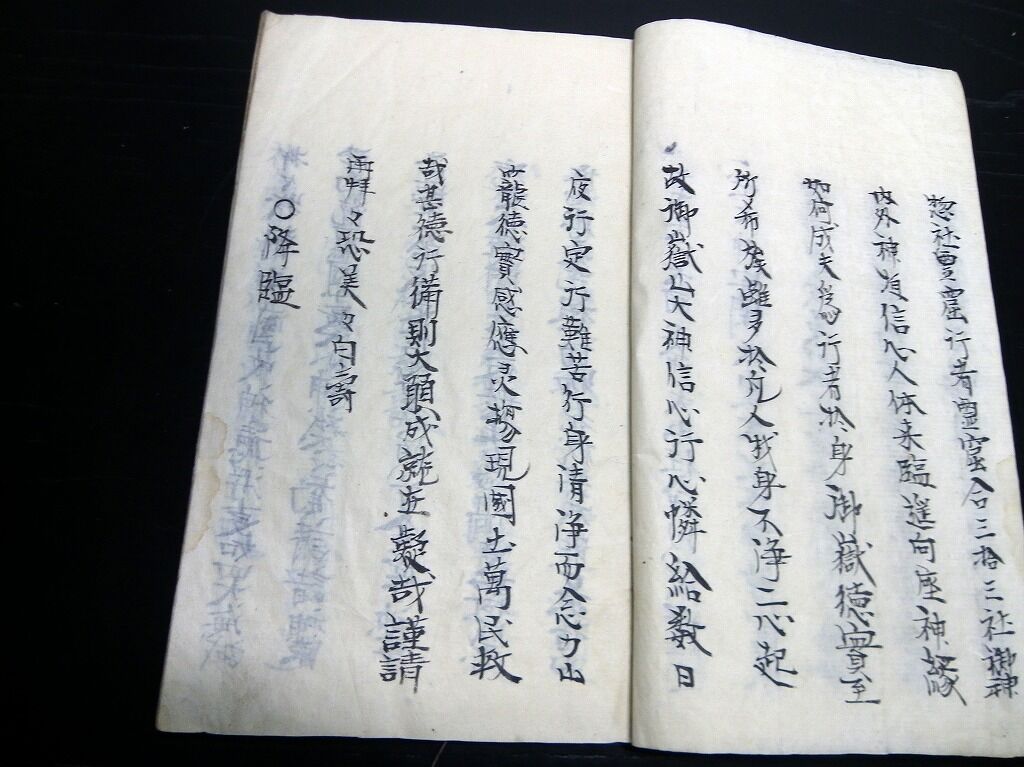 惣社灵窟行者靈窟合三拾三社御神
内外神道信心人体来臨進向座神縁
如何成夫為行者於身御嶽徳貴至
所希族雖多於凡人我身不浄二心起
故御嶽山大神信心行心憐給数日
夜行定行難苦行身清浄而念力山
籠徳實感應灵揚現國土萬民救
哉甚徳行備則大願成就無疑哉謹請
再拝々恐美々白壽
〇降臨